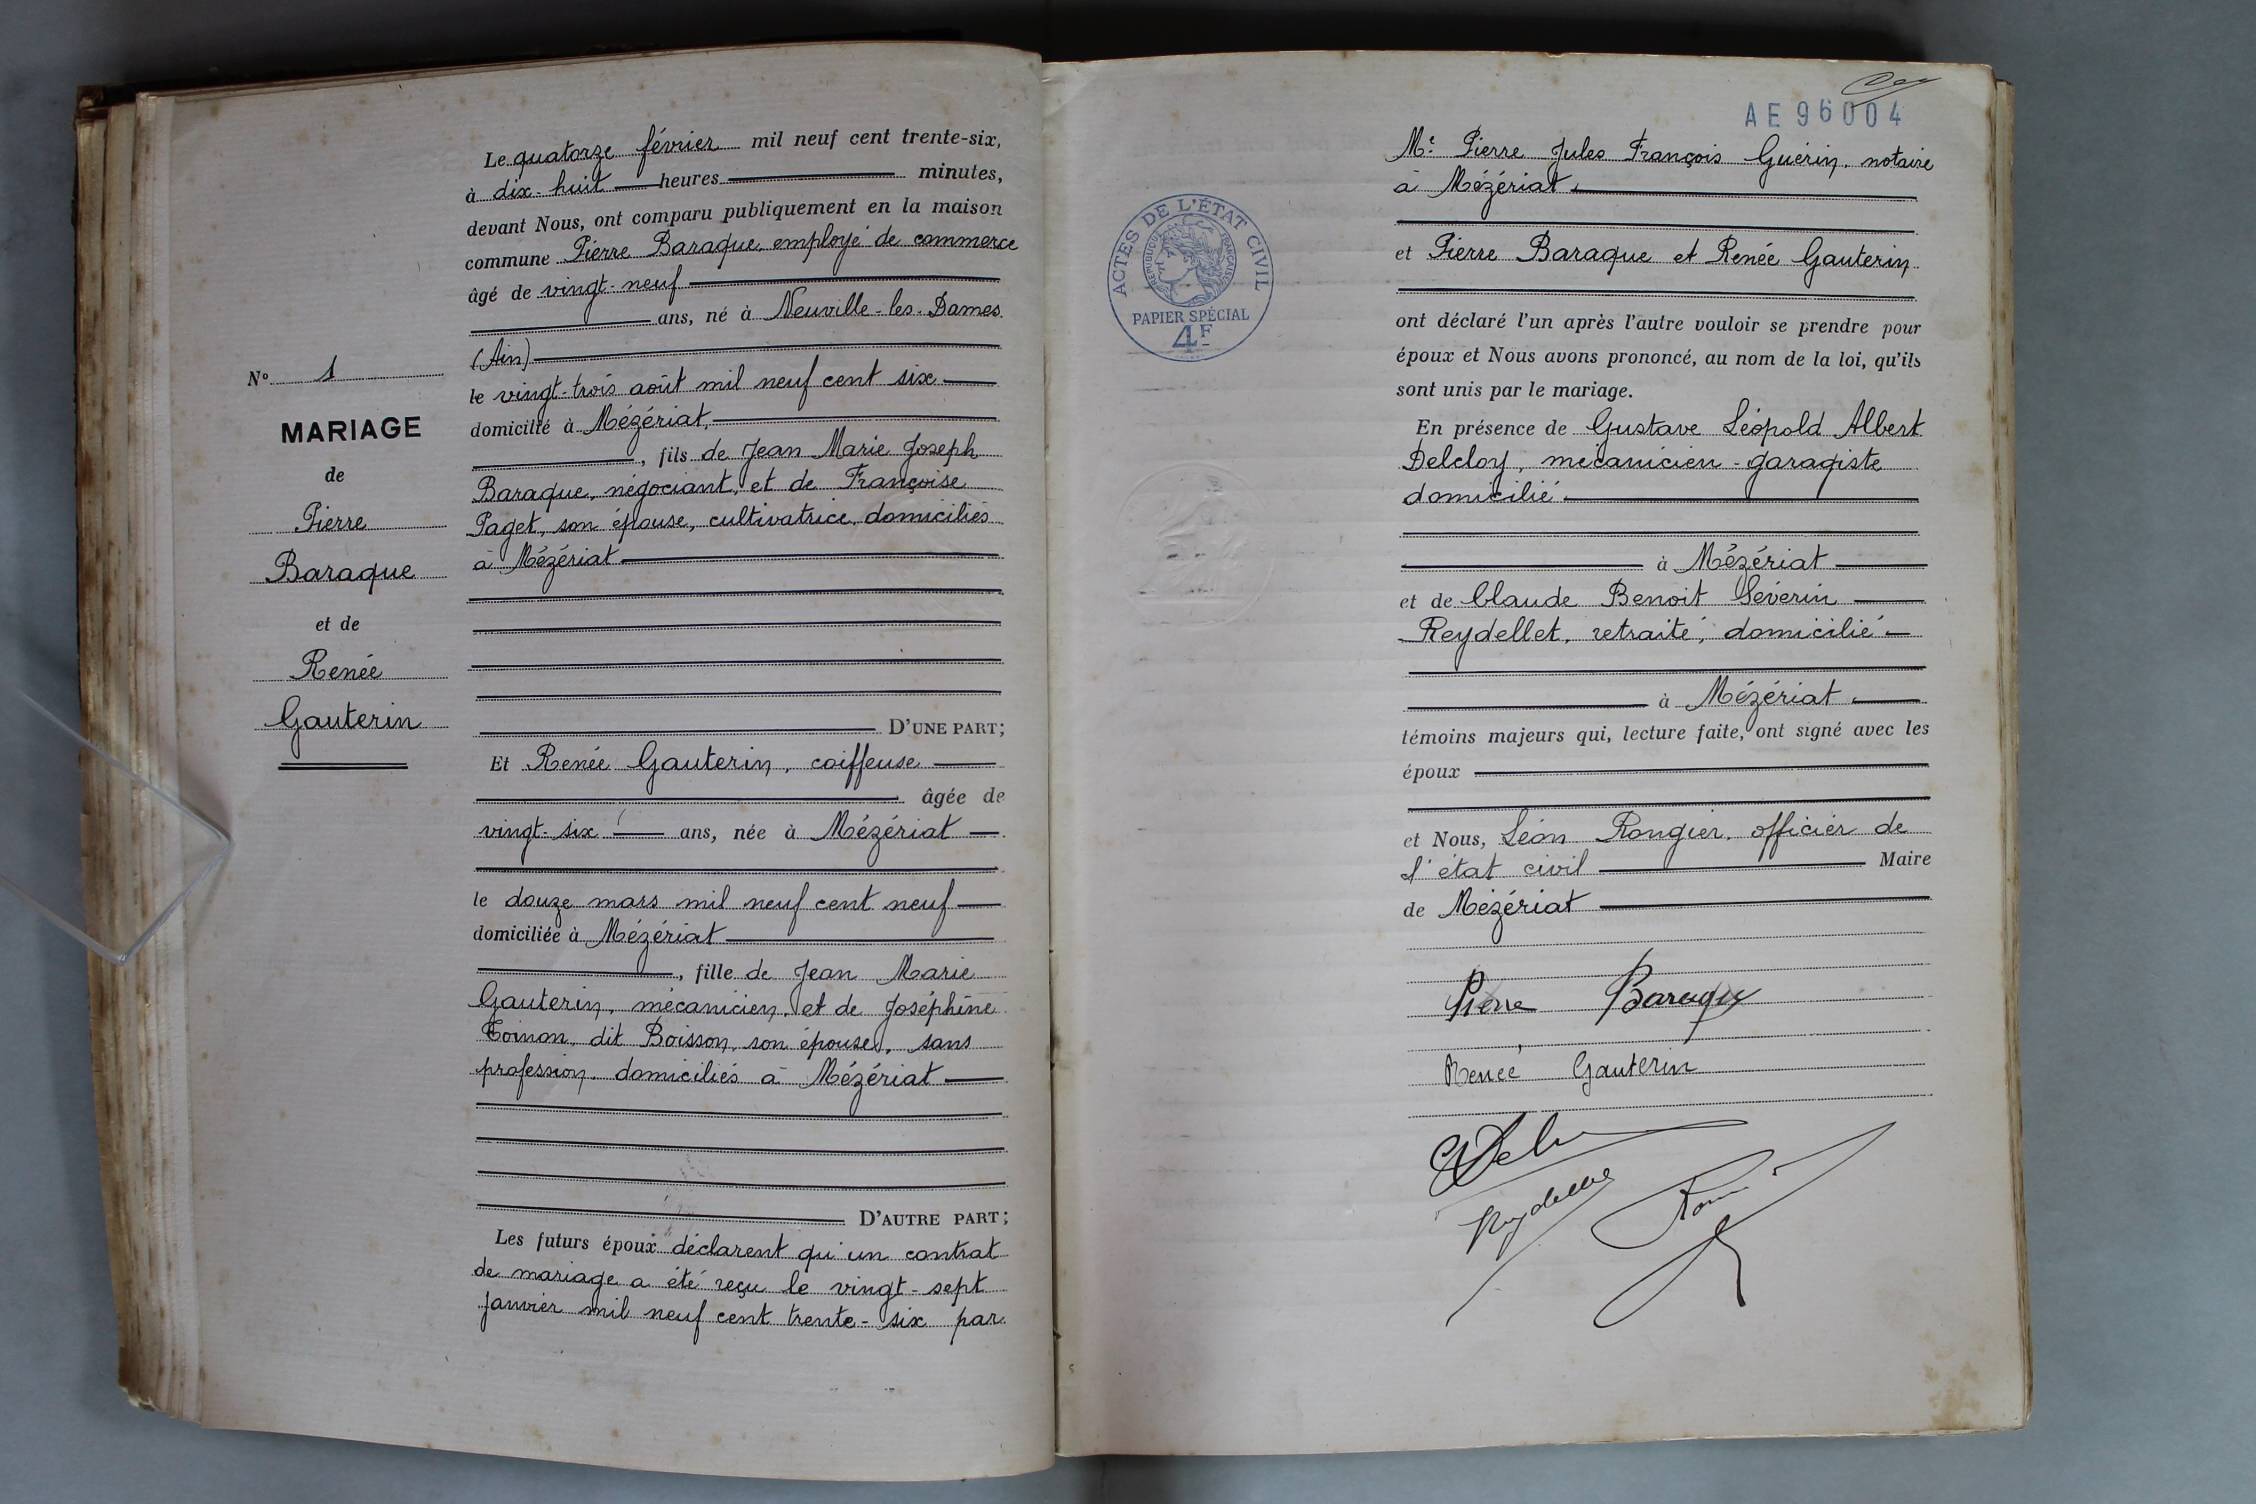 N° 1
MARIAGE
de
Pierre
Baraque
et de
Renée
Gauterin
Le quatorze février mil neuf cent trente-six,
à dix-huit heures minutes,
devant Nous, ont comparu publiquement en la maison
commune Pierre Baraque, employé de commerce
âgé de vingt-neuf
ans, né à Neuville-les-Dames
(Ain)
le vingt-trois août mil neuf cent six
domicilié à Mézériat,
, fils de Jean Marie Joseph
Baraque, négociant, et de Françoise
Paget, son épouse, cultivatrice, domiciliés
à Mézériat
D'UNE PART;
Et Renée Gauterin, coiffeuse
âgée de
vingt-six ans, née à Mézériat
le douze mars mil neuf cent neuf
domiciliée à Mézériat
, fille de Jean Marie
Gauterin, mécanicien, et de Joséphine
Toinon, dit Boisson, son épouse, sans
profession, domiciliés à Mézériat
D'AUTRE PART;
Les futurs époux déclarent qu'un contrat
de mariage a été reçu le vingt-sept
janvier mil neuf cent trente-six par
AE 96004
ACTES DE L'ÉTAT CIVIL
RÉPUBLIQUE FRANÇAISE
PAPIER SPÉCIAL
4F
Me Pierre Jules François Guérin, notaire
à Mézériat
et Pierre Baraque et Renée Gauterin
ont déclaré l'un après l'autre vouloir se prendre pour
époux et Nous avons prononcé, au nom de la loi, qu'ils
sont unis par le mariage.
En présence de Gustave Léopold Albert
Delcloy, mécanicien-garagiste
domicilié
à Mézériat
et de Claude Benoit Séverin
Reydellet, retraité, domicilié
à Mézériat
témoins majeurs qui, lecture faite, ont signé avec les
époux
et Nous, Léon Rongier, officier de
l'état civil Maire
de Mézériat
Pierre Baraque
Renée Gauterin
Reydellet